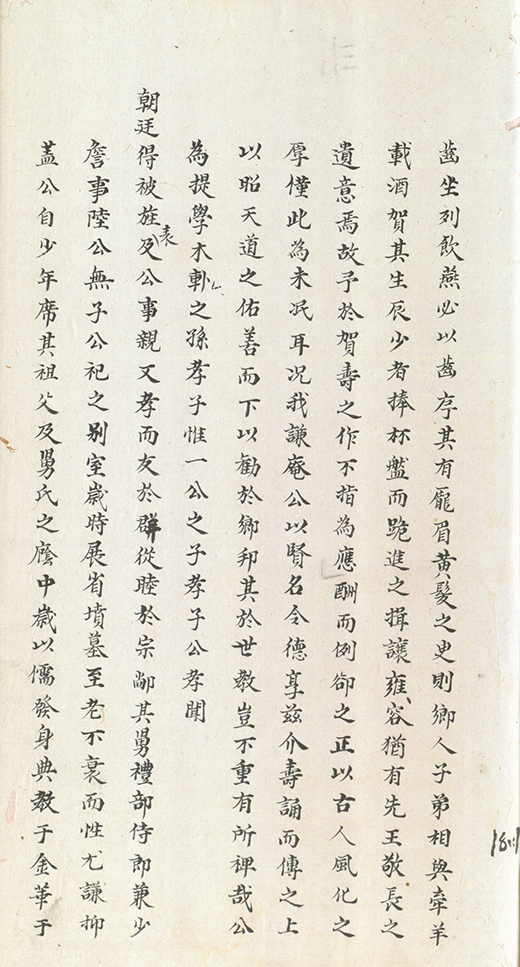 齒坐列飲燕必以齒序其有龐眉黃髮之叟則鄉人子弟相與牽羊
載酒賀其生辰少者捧杯盤而跪進之揖讓雍容猶有先王敬長之
遺意焉故予於賀壽之作不指為應酬而例卻之正以古人風化之
厚僅此為未泯耳况我謙庵公以賢名令德享兹介壽誦而傳之上
以昭天道之佑善而下以勸於鄉邦其於世教豈不重有所裨哉公
為提學木軒之孫孝子惟一公之子孝子公孝聞
朝廷得被旌表及公事親又孝而友於群從睦於宗鄰其舅禮部侍郎兼少
詹事陸公無子公祀之别室歲時展省墳墓至老不衰而性尤謙抑
盖公自少年席其祖父及舅氏之廕中歲以儒發身典教于金華于